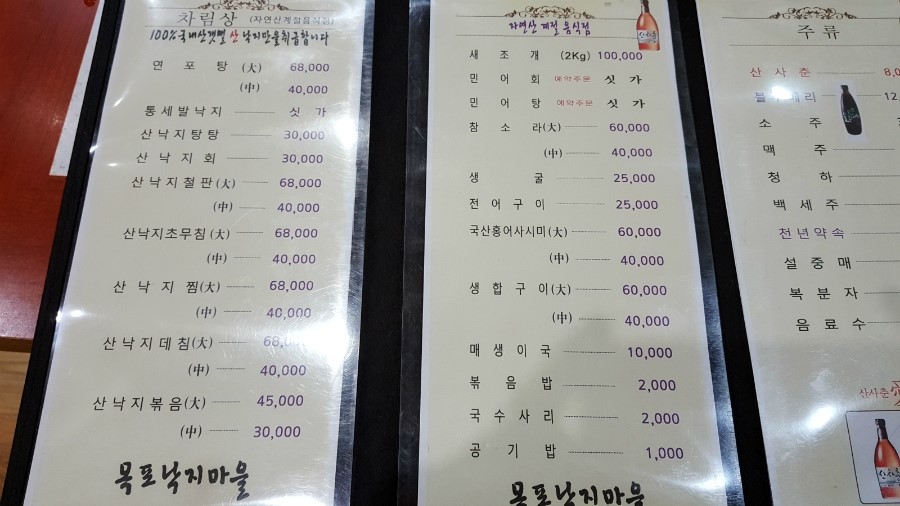 차림상 (자연산계절음식점)
100% 국내산갯뻘 산 낙지만을취급합니다
연 포 탕 (大) 68,000
(中) 40,000
통세발낙지 싯 가
산낙지탕탕 30,000
산 낙 지 회 30,000
산낙지철판(大) 68,000
(中) 40,000
산낙지초무침(大) 68,000
(中) 40,000
산 낙 지 찜(大) 68,000
(中) 40,000
산낙지데침(大) 68,000
(中) 40,000
산낙지볶음(大) 45,000
(中) 30,000
목포낙지마을
자연산 계절 음식점
새 조 개 (2Kg) 100,000
민 어 회 예약주문 싯 가
민 어 탕 예약주문 싯 가
참 소 라(大) 60,000
(中) 40,000
생 굴 25,000
전 어 구 이 25,000
국산홍어사시미(大) 60,000
(中) 40,000
생 합 구 이(大) 60,000
(中) 40,000
매 생 이 국 10,000
볶 음 밥 2,000
국 수 사 리 2,000
공 기 밥 1,000
목포낙지마을
주 류
산 사 춘
소 주
맥 주
청 하
백 세 주
천년약속
설 중 매
복 분 자
음 료 수
산사춘